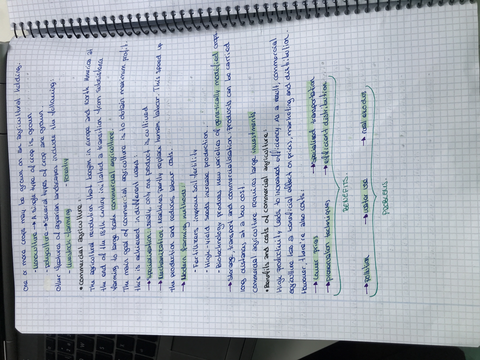 One or more crops may be grown on an agricultural holding.
- Monoculture → A single type of crop is grown
- Polyculture → several types of crops are grown
Other features of agrarian landscapes includes the following:
- Livestock farming - Forestry
• Commercial agriculture:
The agricultural revolution that began in Europe and North America at
the end of the 18th century initiated a transition from subsistence
farming to large scale commercial agriculture.
The main goal of commercial agriculture is to obtain maximum profit
this is achieved in different ways:
→ Specialisation: usually only one product is cultivated
→ Mechanization: machines partly replace human labour. This speed up
the production and reduces labour costs.
→ Modern farming methods:
- Fertilisers soil fertility
- High-yield seeds increase production
- Biotechnology produces new varieties of genetically modified crops
→ Storage, transport and commercialisation: products can be carried
long distances at a low cost.
Commercial agriculture requires large investments
• Benefits and costs of commercial agriculture:
High productivity leads to increased efficiency. As a result, commercial
agriculture has a beneficial effect on prices, marketing and distribution.
However there're also costs:
→ lower prices → specialised transportation
→ preservation techniques → efficient distribution
Benefits
→ pollution → water use → soil erosion
Problems